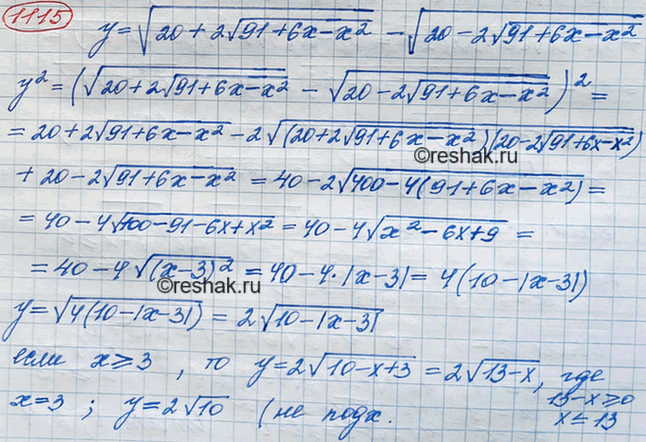 1115
y = √(20 + 2√(91+6x−x²)) − √(20 − 2√(91+6x−x²))
y² = (√(20+2√(91+6x−x²)) − √(20−2√(91+6x−x²)))² =
= 20+2√(91+6x−x²) − 2√((20+2√(91+6x−x²))(20−2√(91+6x−x²)))
©reshak.ru
+ 20 − 2√(91+6x−x²) = 40 − 2√(400 − 4(91+6x−x²)) =
= 40 − 4√(100−91−6x+x²) = 40 − 4√(x²−6x+9) =
= 40 − 4√((x−3)²) = 40 − 4·|x−3| = 4(10−|x−3|)
©reshak.ru
y = √(4(10−|x−3|)) = 2√(10−|x−3|)
если x⩾3 , то y = 2√(10−x+3) = 2√(13−x), где
13−x⩾0
x=3 ; y=2√10 (не подх. x⩽13